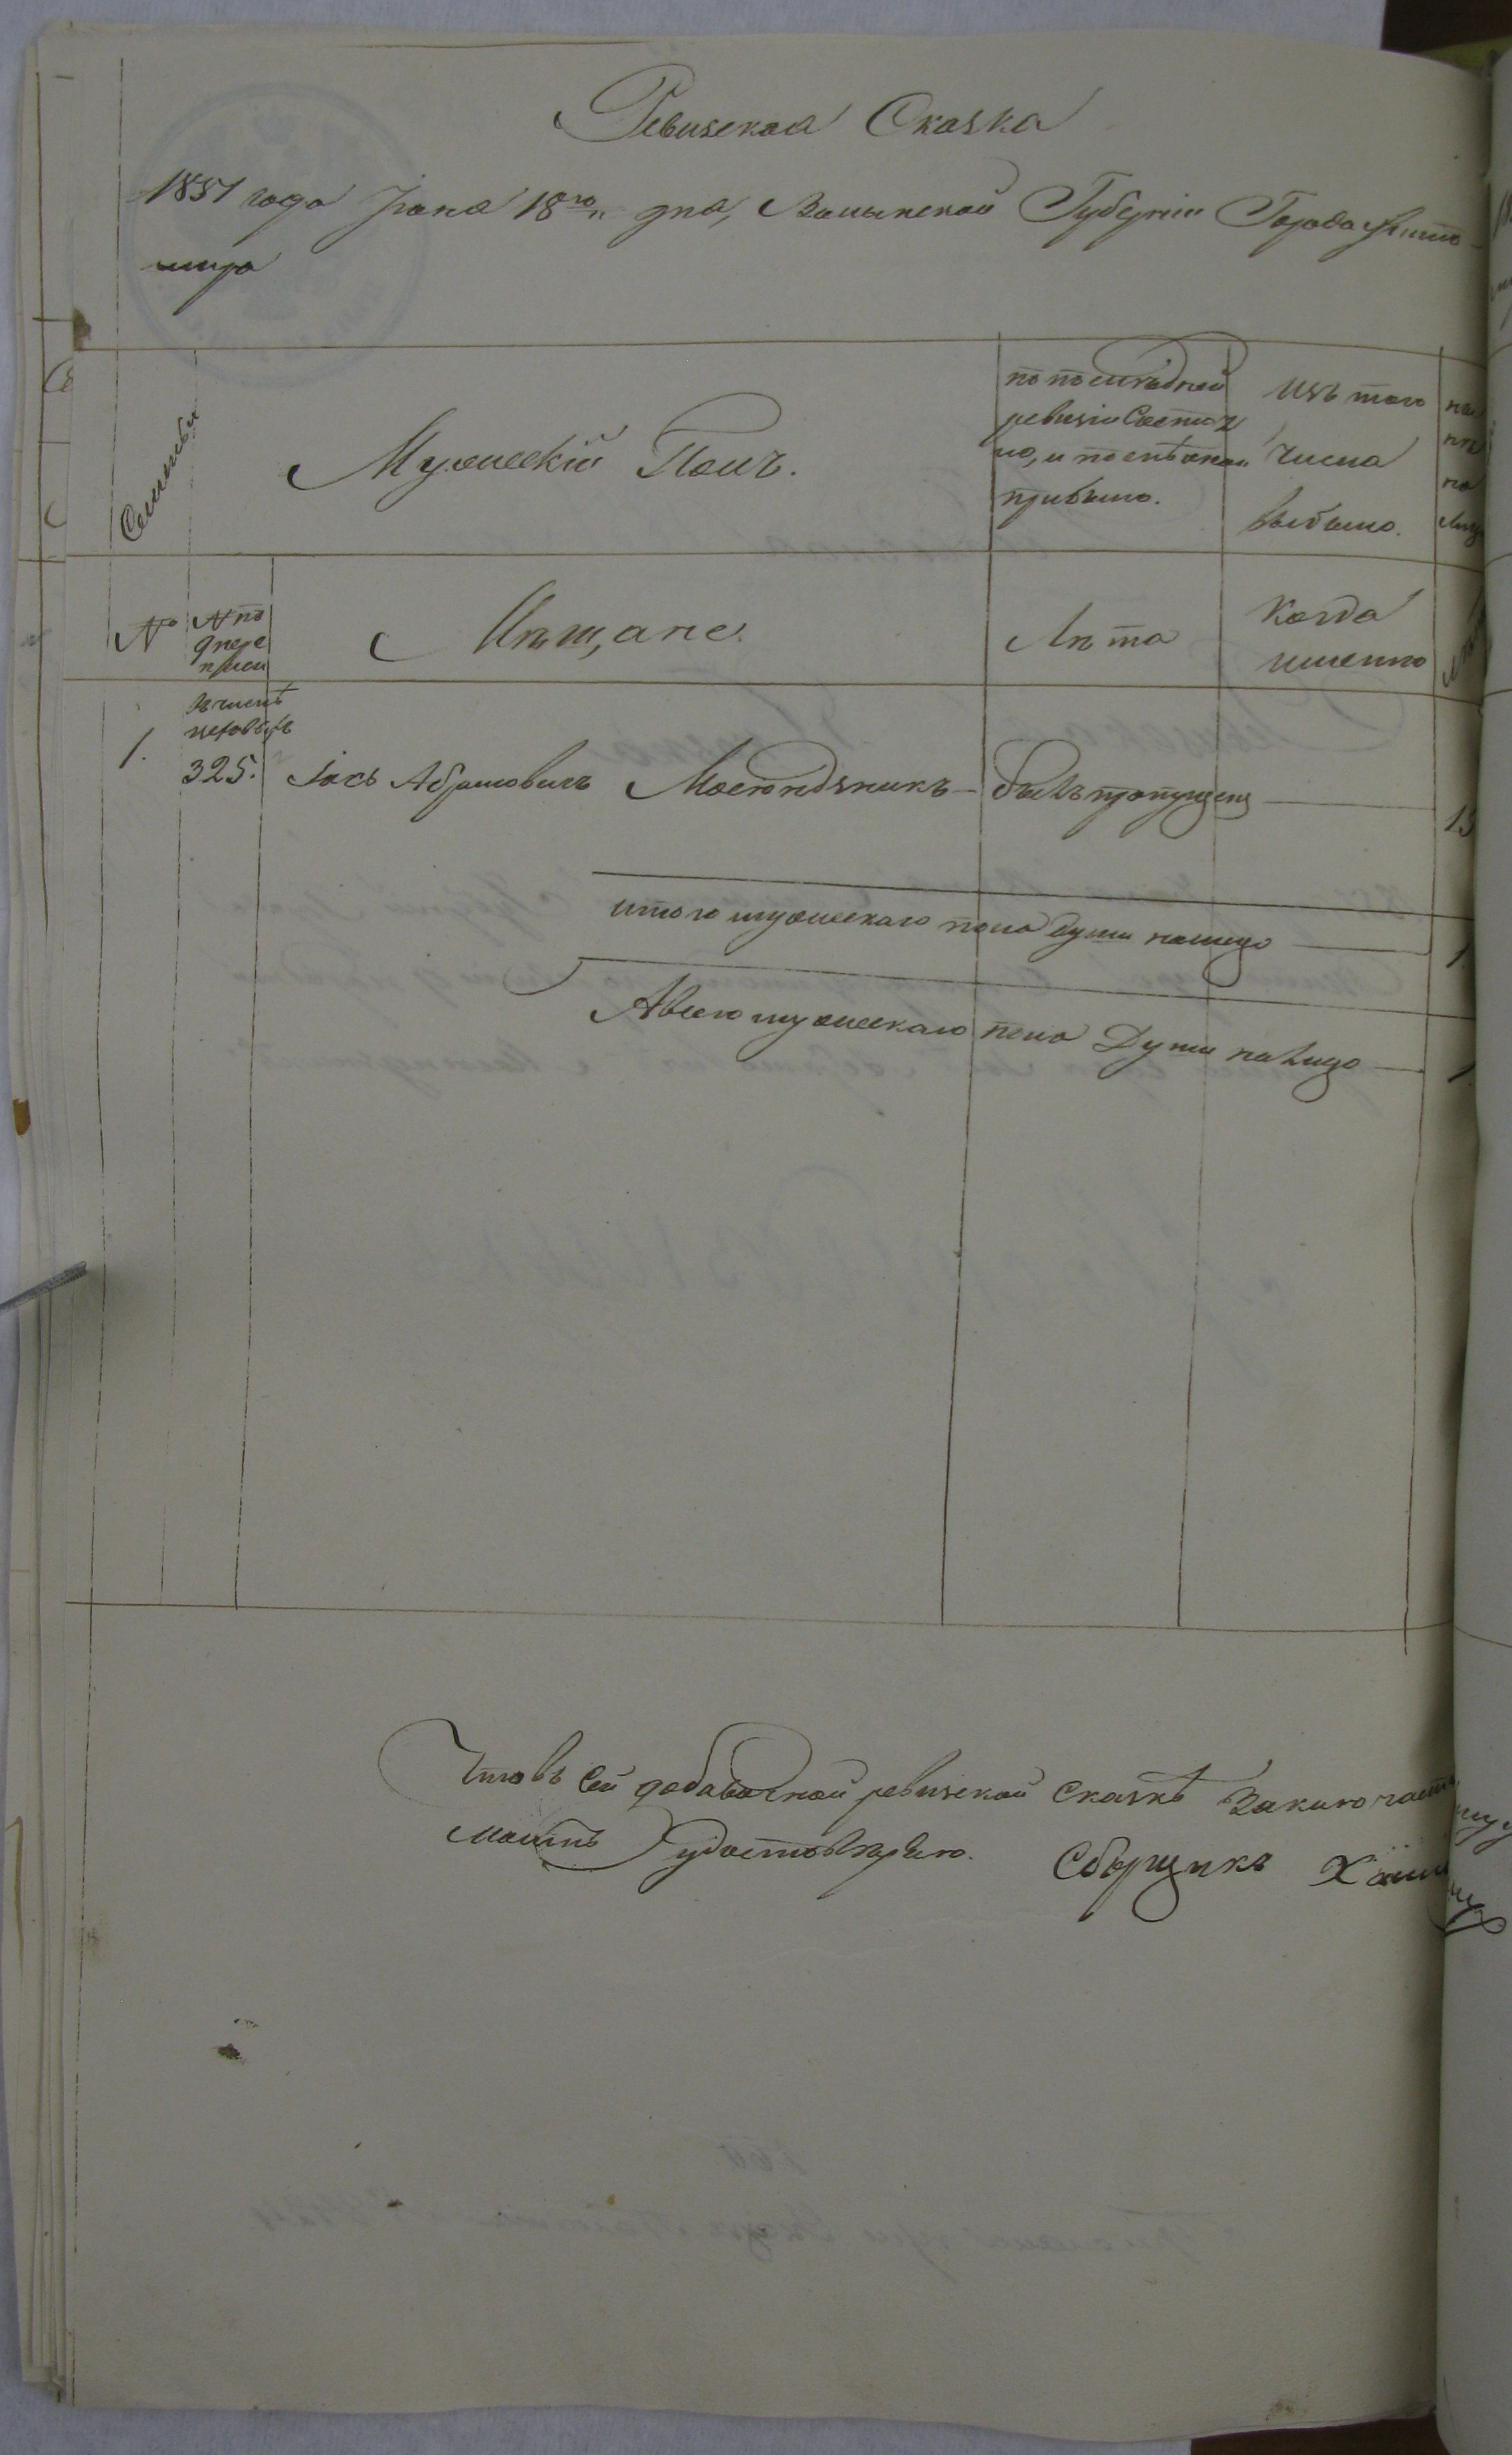 Ревизская Сказка
1851 года Iюня 18го дня, Волынской Губернiи Города Жито-
мира
Семьи
Мужескiй Полъ.
по последней
ревизiи Состоя
ло, и после оной
прибыло.
Изъ того
Числа
выбыло.
№
№ по
преж
Мѣщане.
Лѣта
Когда
именно
1.
325.
Абрамовичъ
былъ пропущенъ
15
итого мужескаго пола души налицо
1
Авсего мужескаго пола Души налицо
1
Что въ Сей добавочной ревизской Сказкѣ Заключает
удостовѣряю. Сборщикъ